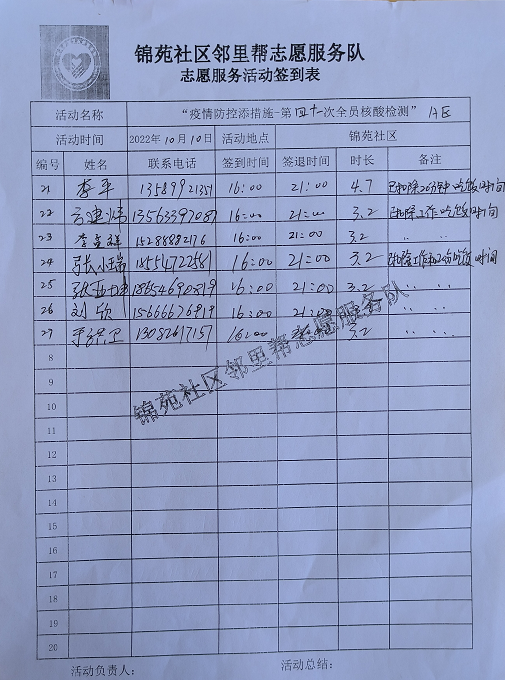 锦苑社区邻里帮志愿服务队
志愿服务活动签到表
活动名称 "疫情防控添措施-第四十一次全员核酸检测" A区
活动时间 2022年10月10日 活动地点 锦苑社区
编号 姓名 联系电话 签到时间 签退时间 时长 备注
21 李平 13589921351 16:00 21:00 4.7 已扣除20分钟吃饭时间
22 13563397087 16:00 21:00 3.2 已扣除工作吃饭时间
23 15288882176 16:00 21:00 3.2 〃 〃
24 张小瑞 18554722581 16:00 21:00 3.2 扣除工作和吃饭时间
25 18654690519 16:00 21:00 3.2 〃 〃
26 刘欣 15666676919 16:00 21:00 3.2 〃 〃
27 13082617157 16:00 3.2 〃 〃
锦苑社区邻里帮志愿服务队
8
9
10
11
12
13
14
15
16
17
18
19
20
活动负责人： 活动总结：